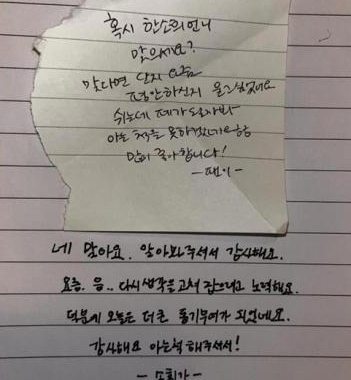 혹시 한소희언니
맞으세요?
맞다면 단지 요즘
평안하신지 묻고싶었어요
쉬는데 폐가 될까봐
아는 척을 못하겠네요
많이 좋아합니다!
-팬이-
네 맞아요. 알아봐주셔서 감사해요.
요즘. 음.. 다시 생각을 고쳐 잡으려고 노력해요.
덕분에 오늘은 더 큰 동기부여가 되었네요.
감사해요 아는척 해주셔서!
- 소희가 -